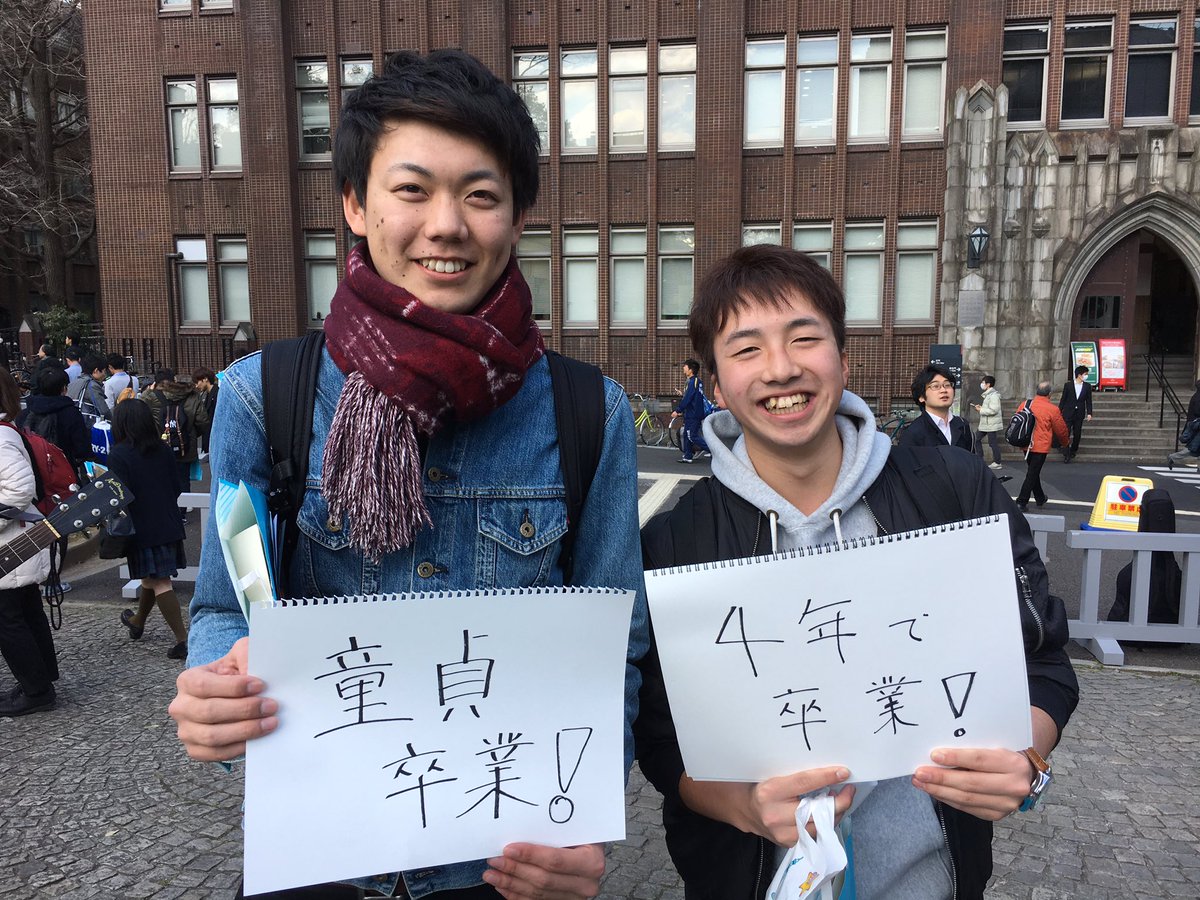 童貞
卒業!
4年で
卒業!
駐車禁止